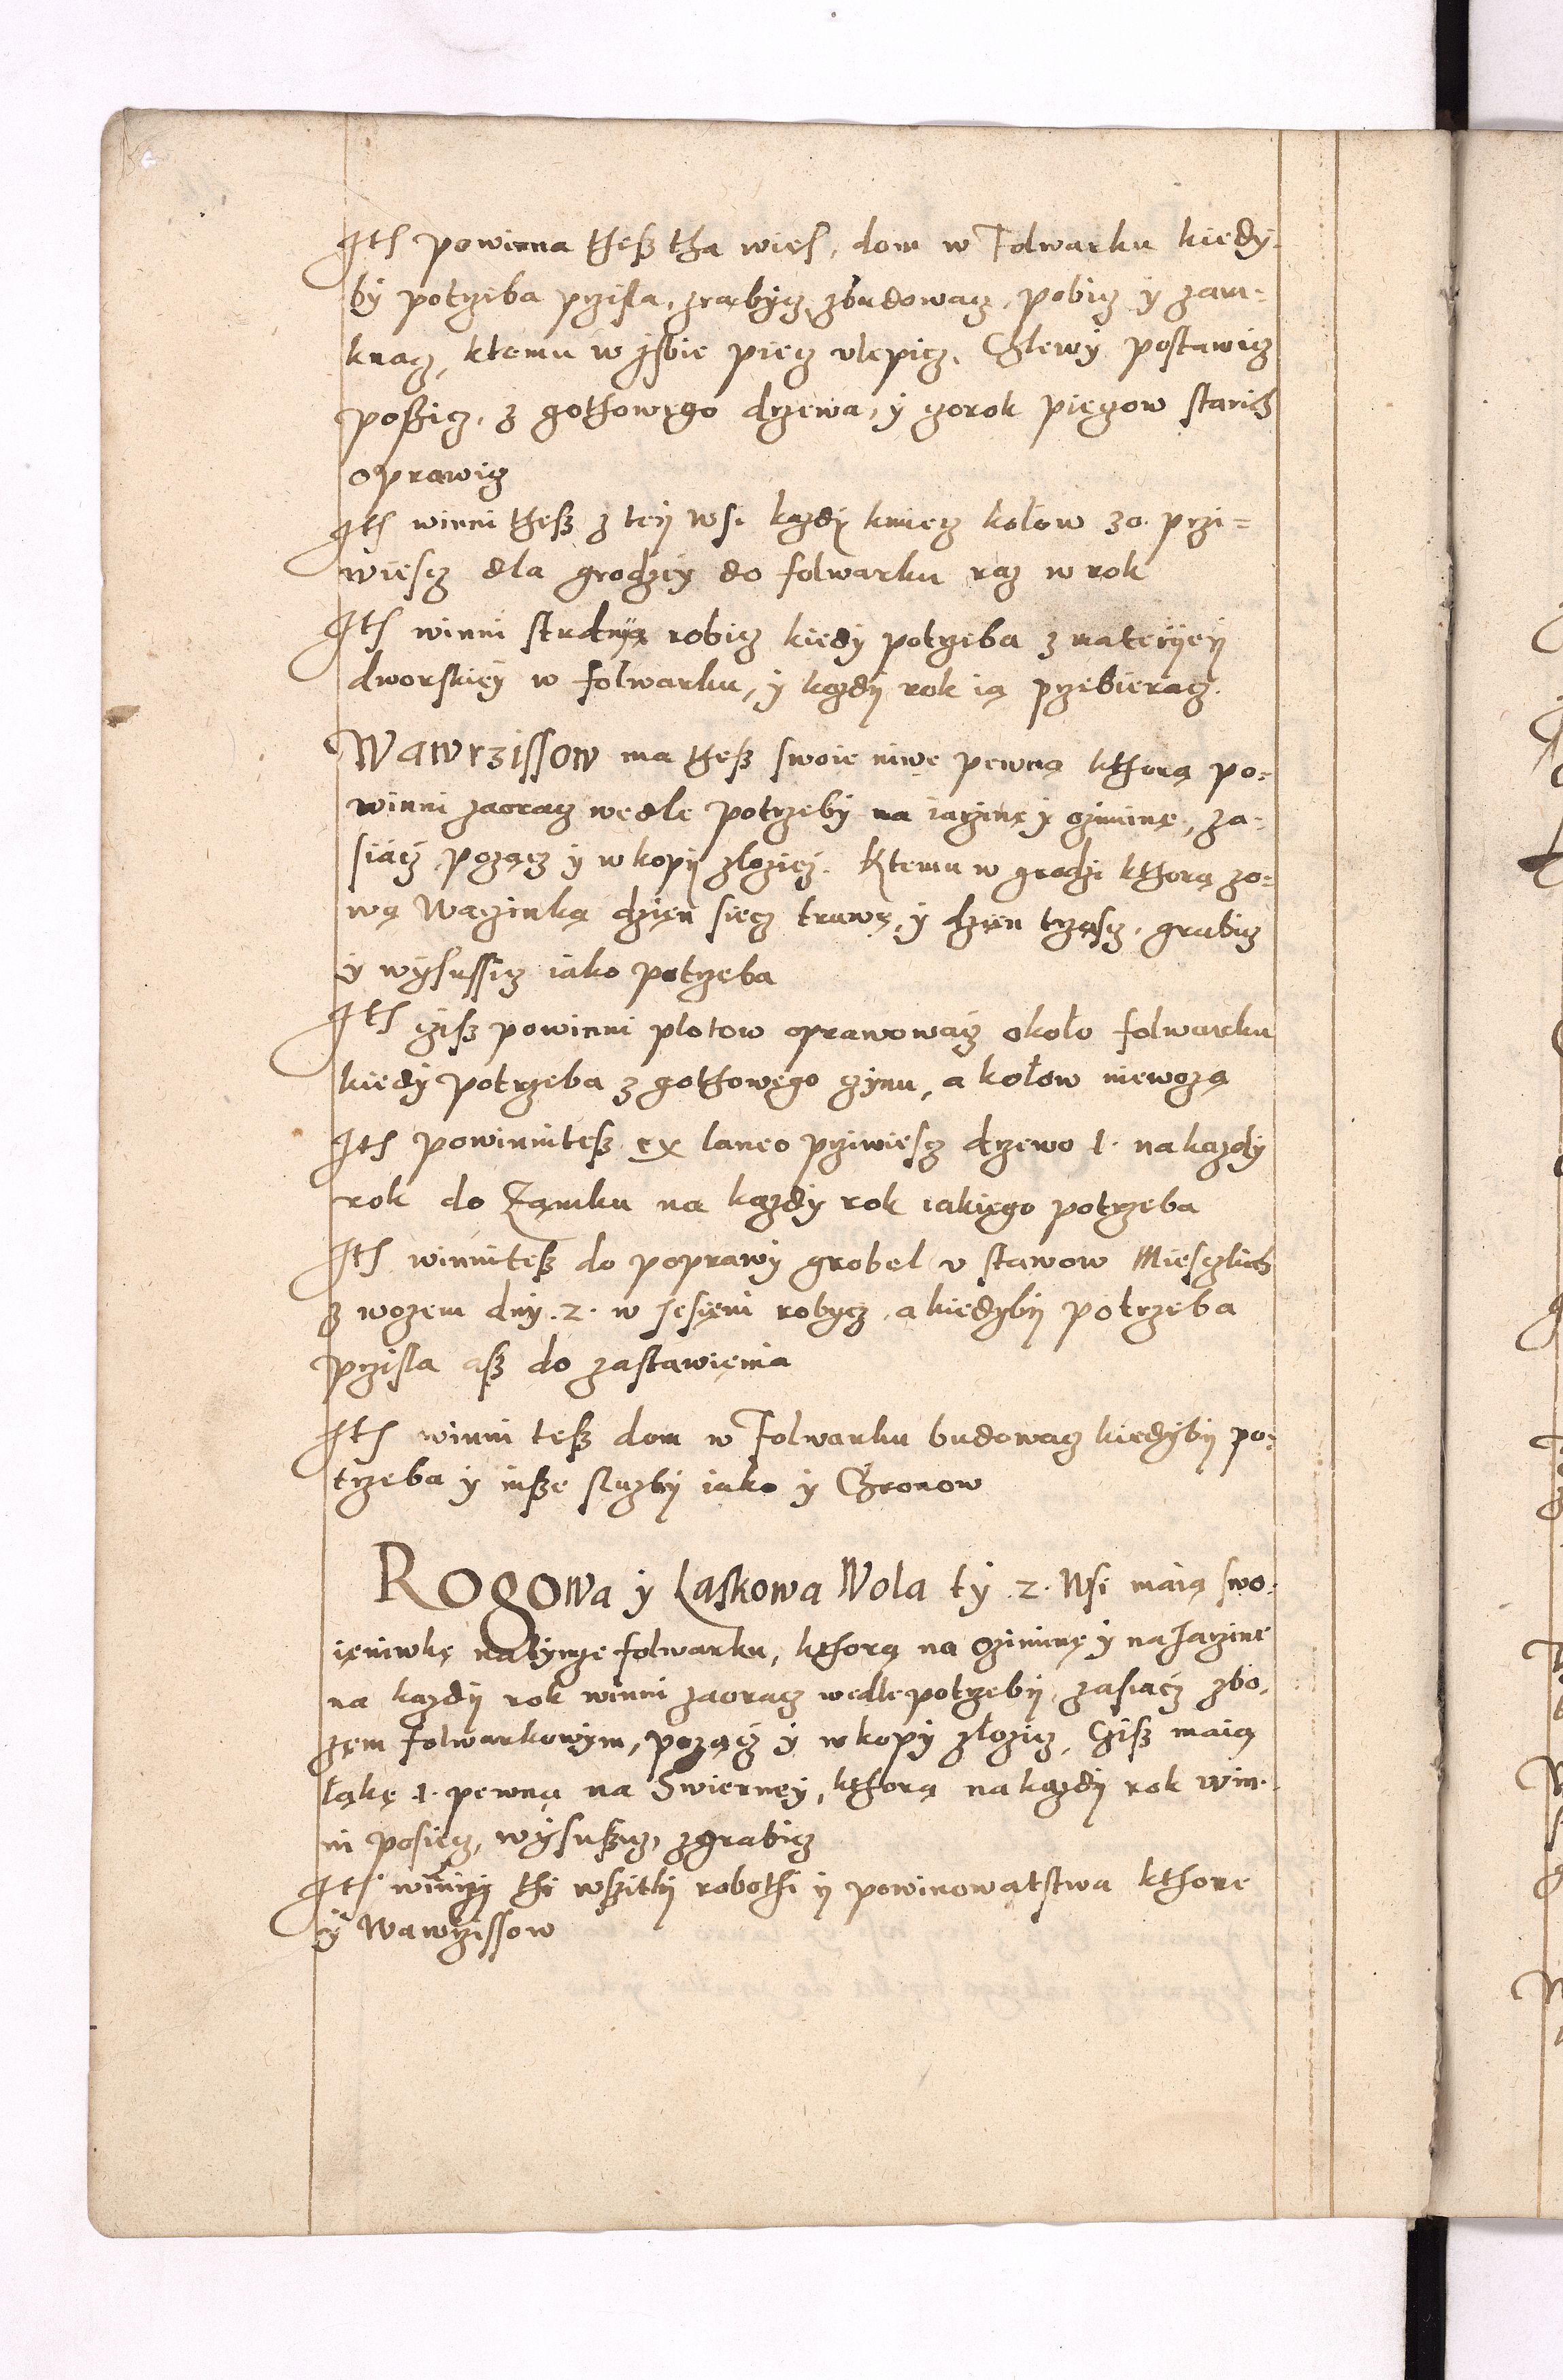 Ite powinna thesz tha wies, dom w Folwarku kiedy-
by potrzeba przisla, zrąbycz, zbudowacz, pobicz y zam=
knącz, ktemu w izbie piecz ulepicz, Chlewy postawicz
poszicz, z gothowego drzewa, y czorok pieczow starich
oprawicz
Ite winni thesz z tey wsi każdy kmiecz kołow 30. przi=
wiescz dla grodzey do folwarku raz w rok
Ite winni studnyą robicz kiedy potrzeba z materyey
dworskiey w folwarku, y każdy rok ią przebieracz.
Wawrzissow ma thesz swoie niwe pewną kthorą po=
winni zaoracz wedle potrzeby na iarzinę y oziminę, za-
siacz pożącz y w kopy zlozicz. Ktemu w grodzi kthorą zo=
wą Waczinką dzien siecz trawę, y dzien trząscz, grabicz
y wysussicz iako potrzeba
Ite cisz powinni plotow oprawowacz około folwarku
kiedy potrzeba z gothowego czynu, a kołow niewożą
Ite powinni tesz ex laneo prziwiescz drzewo 1. na kazdy
rok do Zamku na każdy rok iakiego potrzeba
Ite winni tesz do poprawy grobel u stawow Miesczkich
z wozem dny .2. w Jesieni robycz, a kiedyby potrzeba
przisla asz do zastawienia
Ite winni tesz dom w Folwarku budowacz kiedyby po-
trzeba y insze sluzby iako y Chronow
Rogowa y Laskowa Wola ty .2. Wsi maią swo-
ię niwkę na tymze folwarku, kthorą na oziminę y na Jarzine
na każdy rok winni zaoracz wedle potrzeby, zasiacz zbo-
żem folwarkowym, pożącz y w kopy złozicz, Cisz maią
łąkę .1. pewną na Swierney, kthorą na każdy rok win-
ni posiecz, wysuszicz, zgrabicz
Ite winny thi wszitky robothi y powinowatstwa kthore
y Wawrzissow